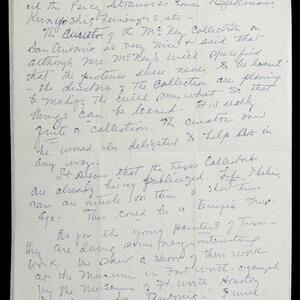 and the Percy Strauses have
Kuniyoshi, Feininger's, etc -
The curator of the McNey Collection in
San Antonio is very nice & said that
although Mrs. McNey's will specified
that the pictures were never to be loaned
- the directors of the Collection are planning
to modify the will somewhat so that
things can be loaned. It is really
quite a collection. The curator said
he would be delighted to help us in
any way.
It seems that the Texas Collectors
are already being publicized. Life
ran an article on them a short time
ago - This could be a
As for the young painters of Texas -
they are doing some very interesting
work. We saw a show of their work
at the Museum in Fort Worth organized
by the Museums of Ft. Worth Houston
San Antonio & will